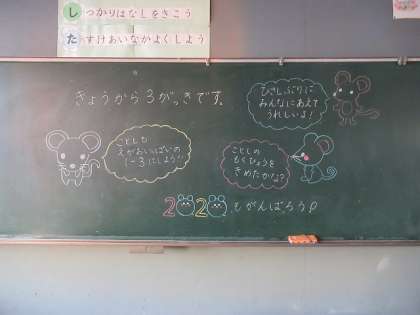 しっかりはなしをきこう
たすけあいなかよくしよう
きょうから3がっきです。
ひさしぶりに
みんなにあえて
うれしいよ!
ことしも
えがおいっぱいの
1-3にしよう!!
ことしの
もくひょうを
きめたかな?
2020もがんばろう